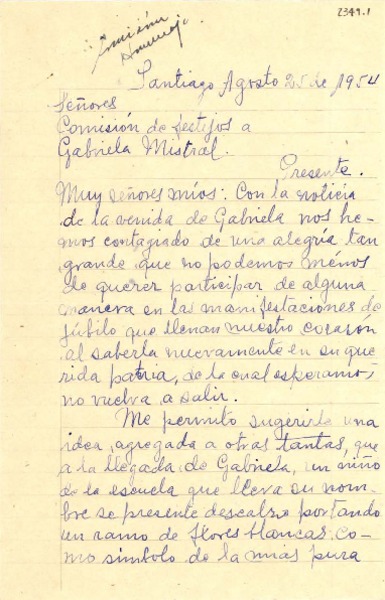 2349.1
Comisión
Homenaje
Santiago Agosto 25 de 1954
Señores
Comisión de festejos a
Gabriela Mistral.
Presente.
Muy señores míos: Con la noticia
de la venida de Gabriela nos he-
mos contagiado de una alegría tan
grande que no podemos menos
de querer participar de alguna
manera en las manifestaciones de
júbilo que llenan nuestro corazon
al saberla nuevamente en su que
rida patria, de la cual esperamos,
no vuelva a salir.
Me permito sugerirle una
idea, agregada a otras tantas, que
a la llegada de Gabriela, un niño
de la escuela que lleva su nom-
bre se presente descalzo portando
un ramo de flores blancas: co-
mo símbolo de la más pura